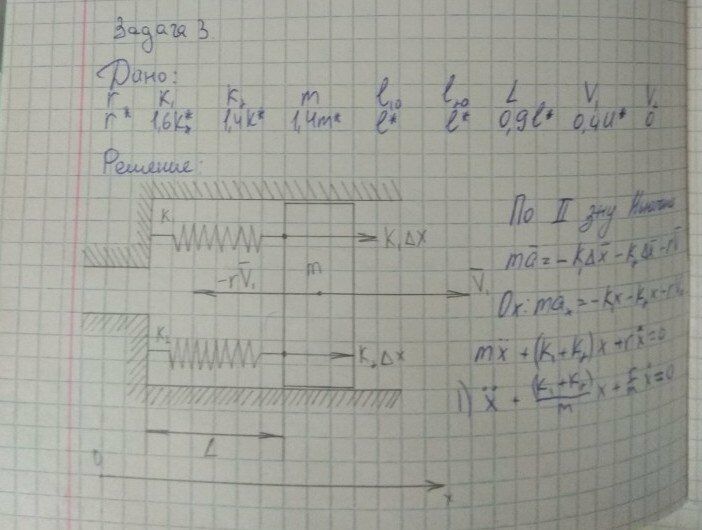 Задача 3.
Дано:
r K₁ K₂ m l₁₀ l₂₀ L V₁ V₂
r* 1,6K* 1,4K* 1,4m* l* l* 0,9l* 0,4u* 0
Решение:
K₁
K₁Δx
-rV̅₁
m
V̅₁
K₂
K₂Δx
L
0
x
По II з-ну Ньютона
ma̅ = -K₁Δx̅ - K₂Δx̅ - rV̅
Ox: maₓ = -K₁x - K₂x - rVₓ
mẍ + (K₁+K₂)x + rẋ = 0
1) ẍ + (K₁+K₂)/m x + r/m ẋ = 0